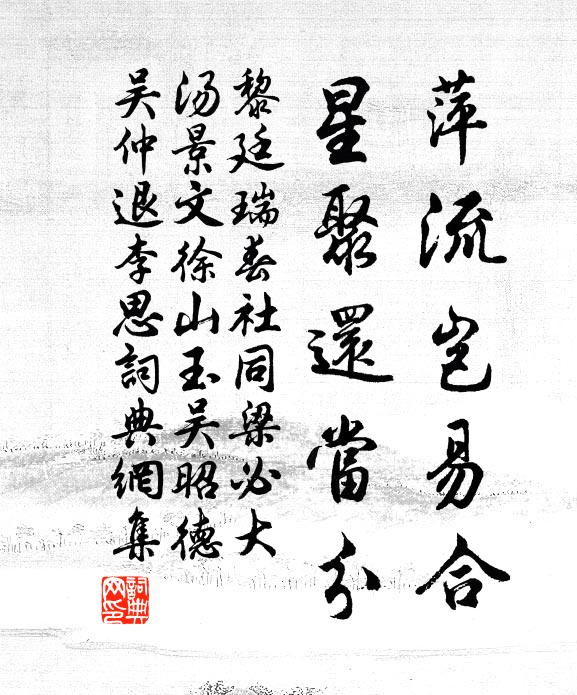 萍流岂易合
星聚還當分
黎廷瑞春社同梁必大
湯景文徐山玉吴昭德
吴仲退李思詞典網集
詞典網印